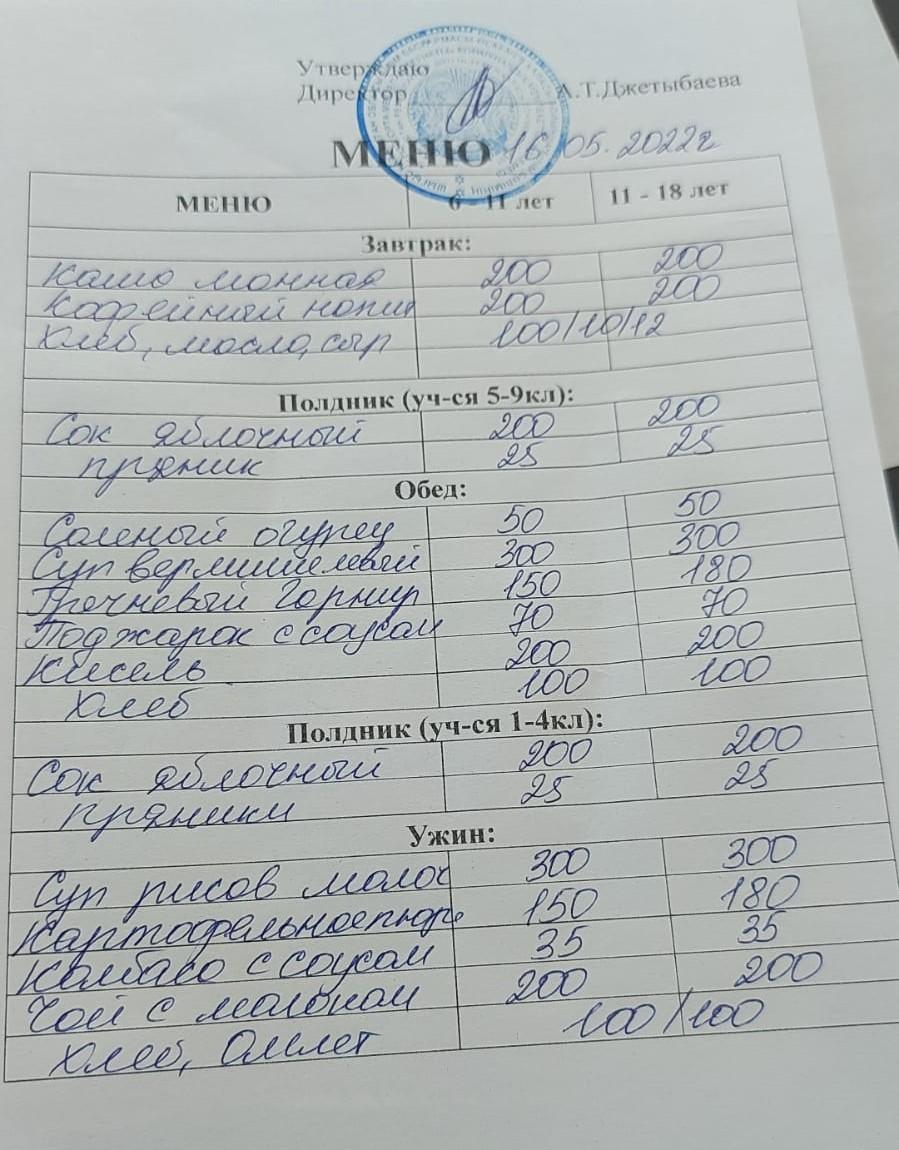 Утверждаю
Директор А.Т.Джетыбаева
МЕНЮ 16.05.2022г
МЕНЮ 6 - 11 лет 11 - 18 лет
Завтрак:
Каша манная 200 200
Кофейный напит 200 200
Хлеб, масло, сыр 100/10/12
Полдник (уч-ся 5-9кл):
Сок яблочный 200 200
пряник 25 25
Обед:
Соленый огурец 50 50
Суп вермишелевый 300 300
Гречневый гарнир 150 180
Поджарок с соусом 70 70
Кисель 200 200
Хлеб 100 100
Полдник (уч-ся 1-4кл):
Сок яблочный 200 200
пряники 25 25
Ужин:
Суп рисов молоч 300 300
Картофельноепюре 150 180
Колбаса с соусом 35 35
Чай с молоком 200 200
Хлеб, Омлет 100/100